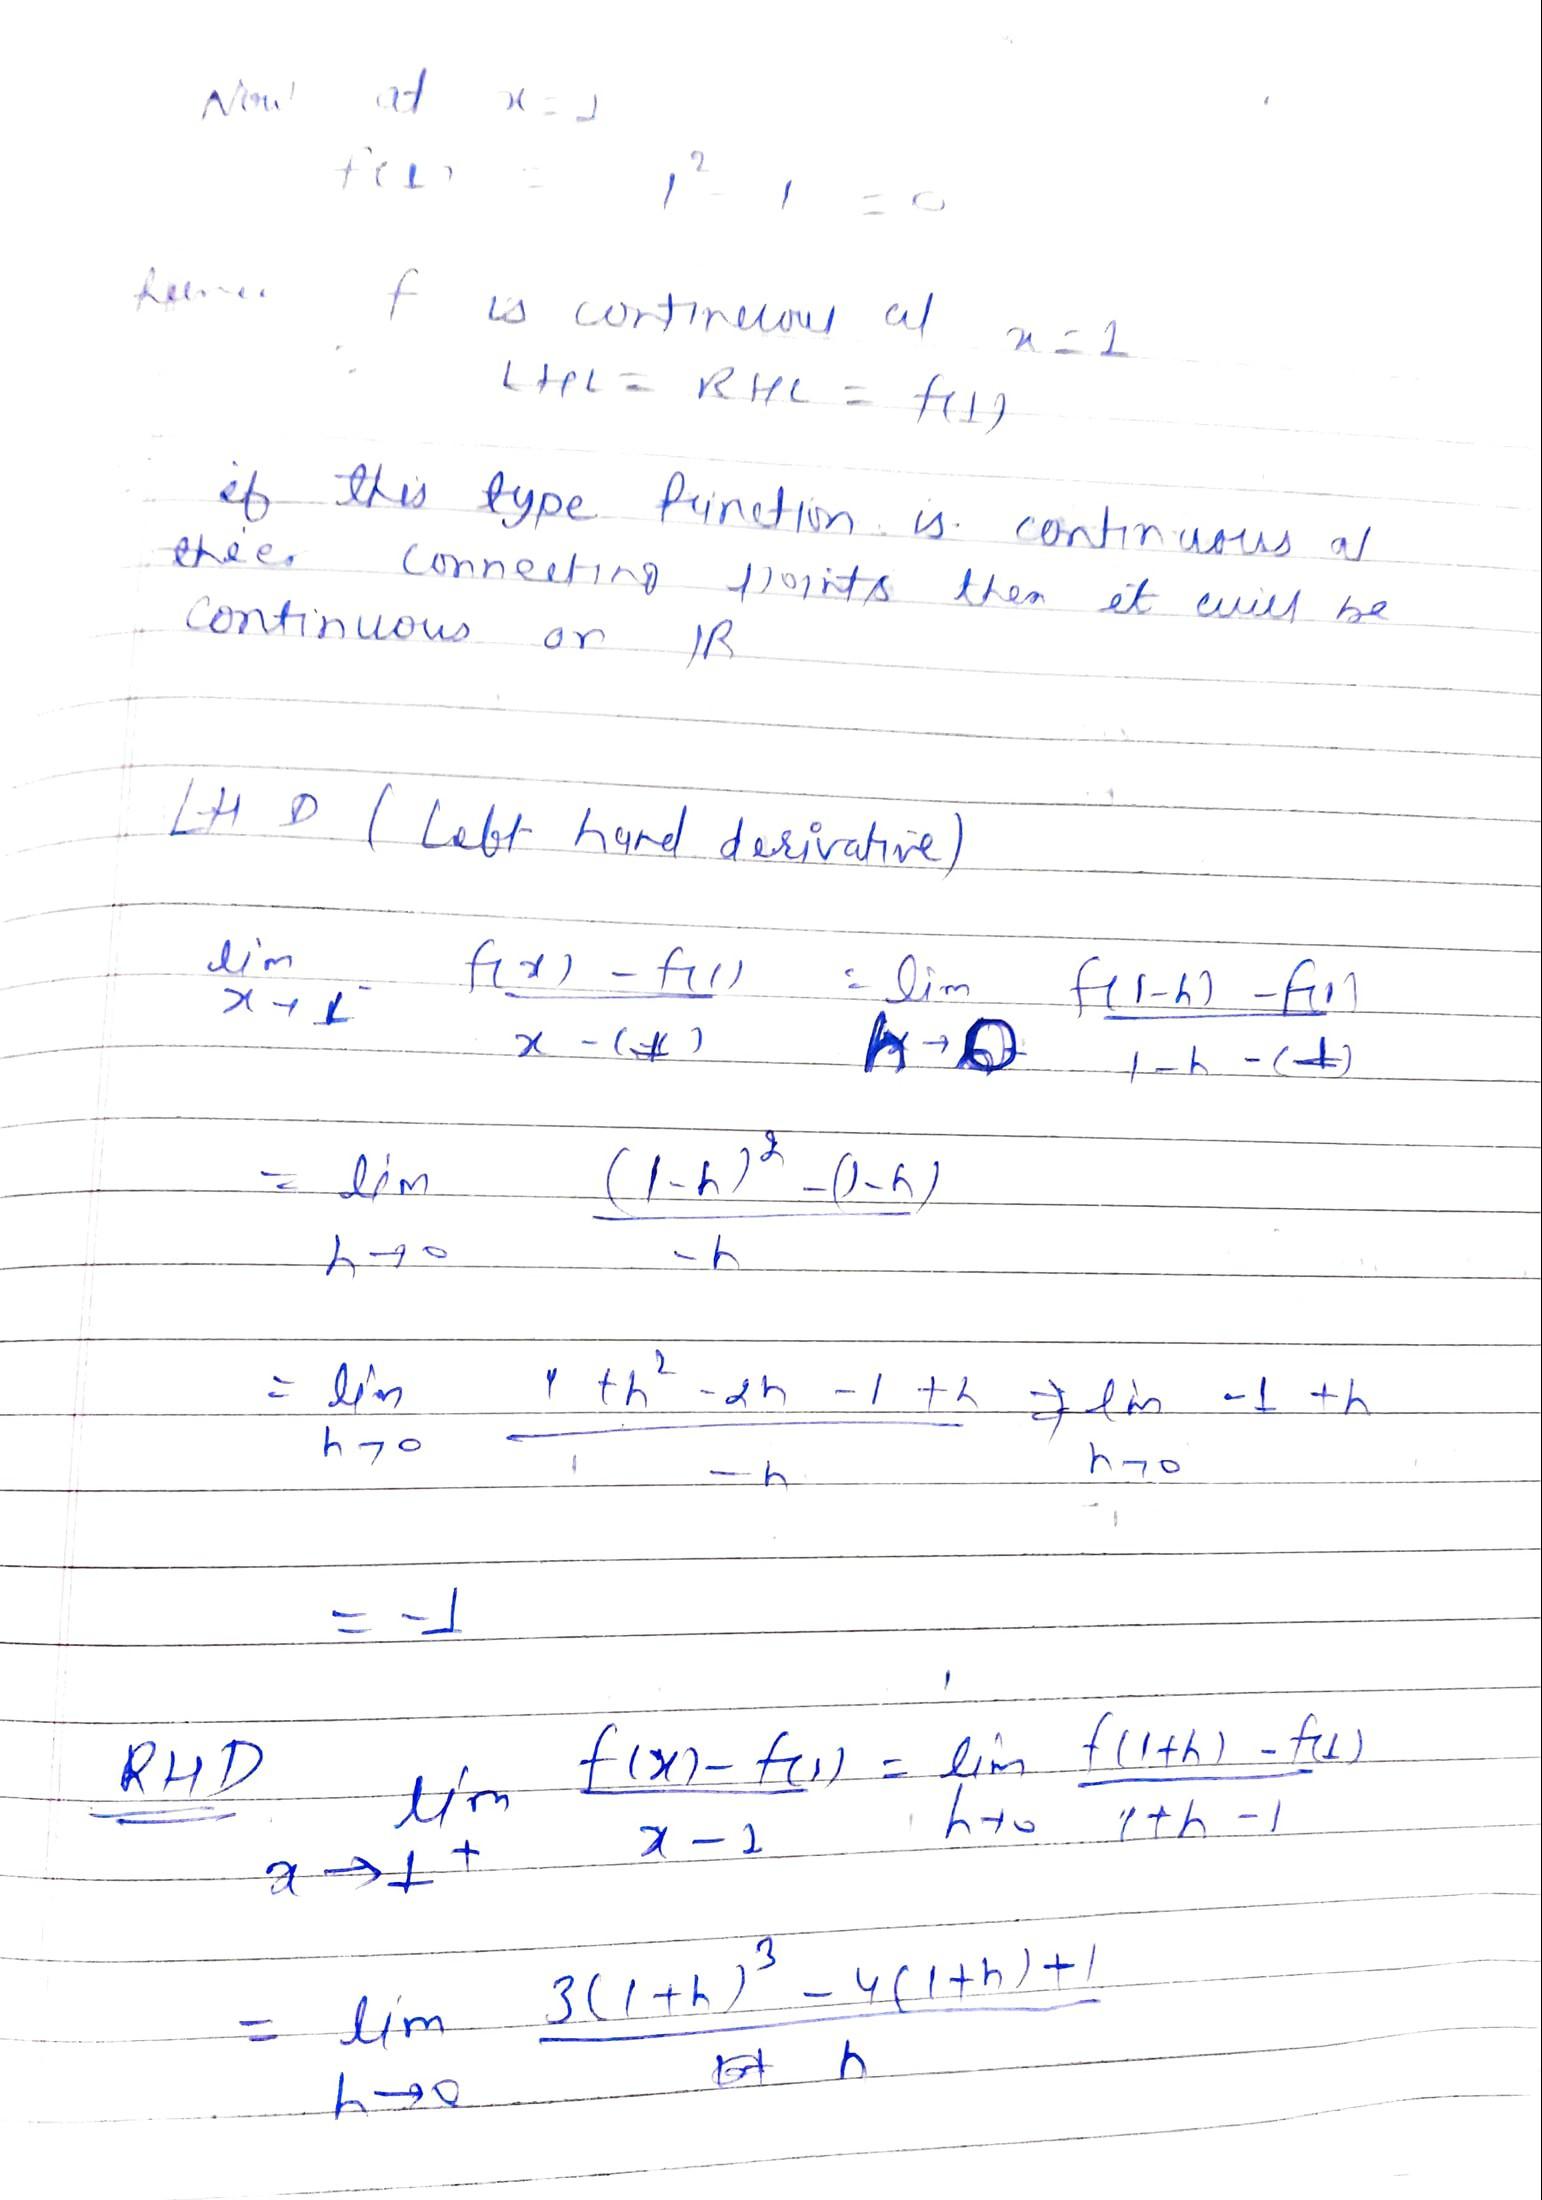 Now at x = 1
f(1) = 1² - 1 = 0
f is continuous at x = 1
LHL = RHL = f(1)
if this type function is continuous at
their connecting points then it will be
continuous on IR
LHD (Left hand derivative)
lim x→1⁻ f(x) - f(1) / x - (1) = lim h→0 f(1-h) - f(1) / 1-h - (1)
= lim h→0 (1-h)² - (1-h) / -h
= lim h→0 1 + h² - 2h - 1 + h / -h ⇒ lim h→0 -1 + h
= -1
RHD lim x→1⁺ f(x) - f(1) / x - 1 = lim h→0 f(1+h) - f(1) / 1+h - 1
= lim h→0 3(1+h)³ - 4(1+h) + 1 / h